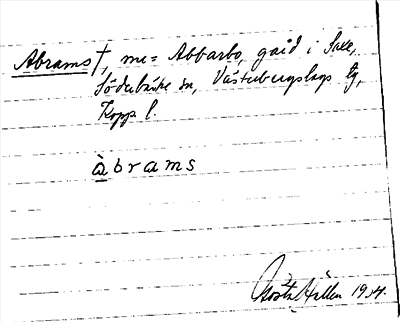 Abrams †, me = Abbarbo, gård i Saxe,
Söderbärke sn, Västerbergslags tg,
Kopp l.
àbrams
Gösta Hållen 1934.